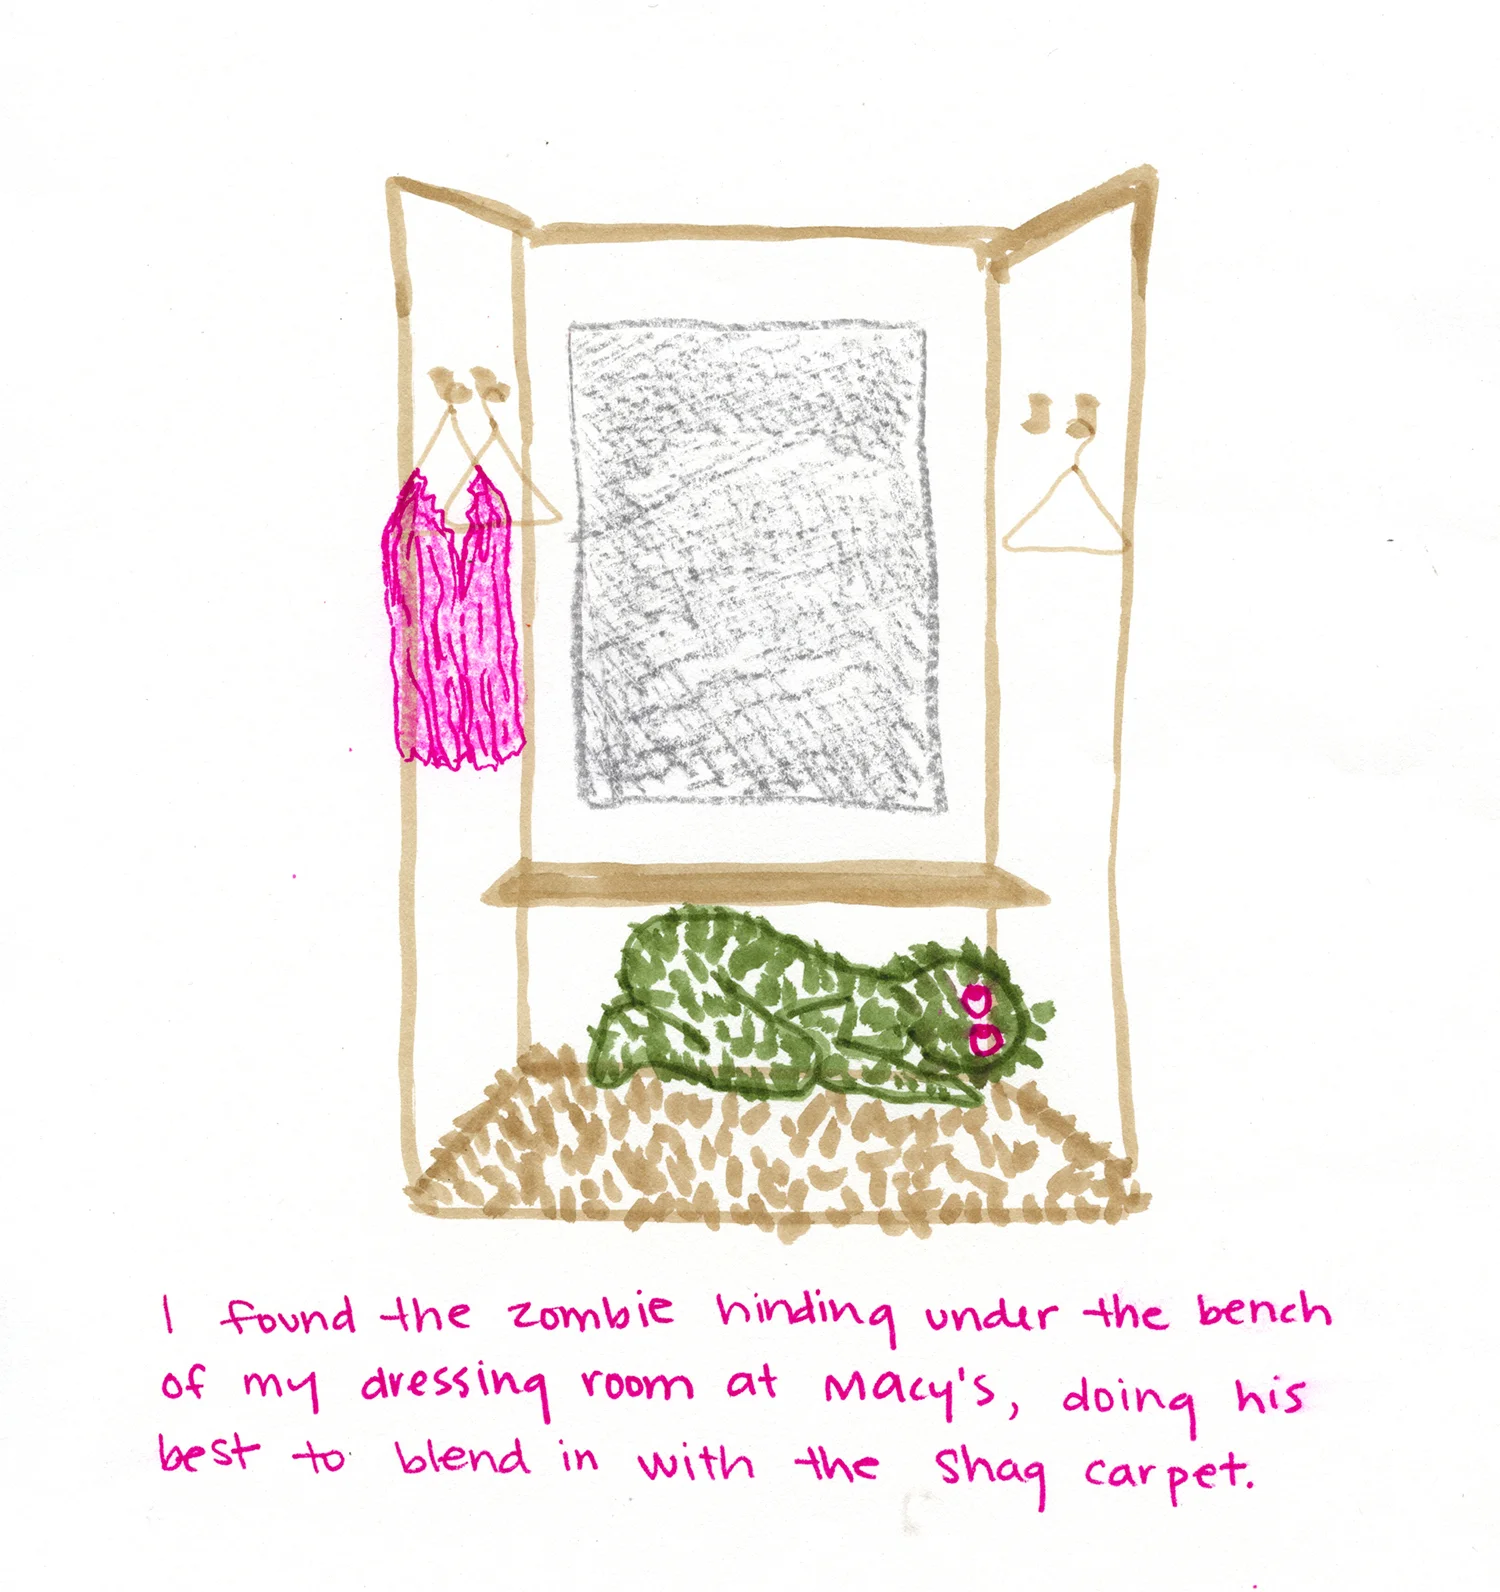 I found the zombie hinding under the bench
of my dressing room at Macy's, doing his
best to blend in with the shag carpet.